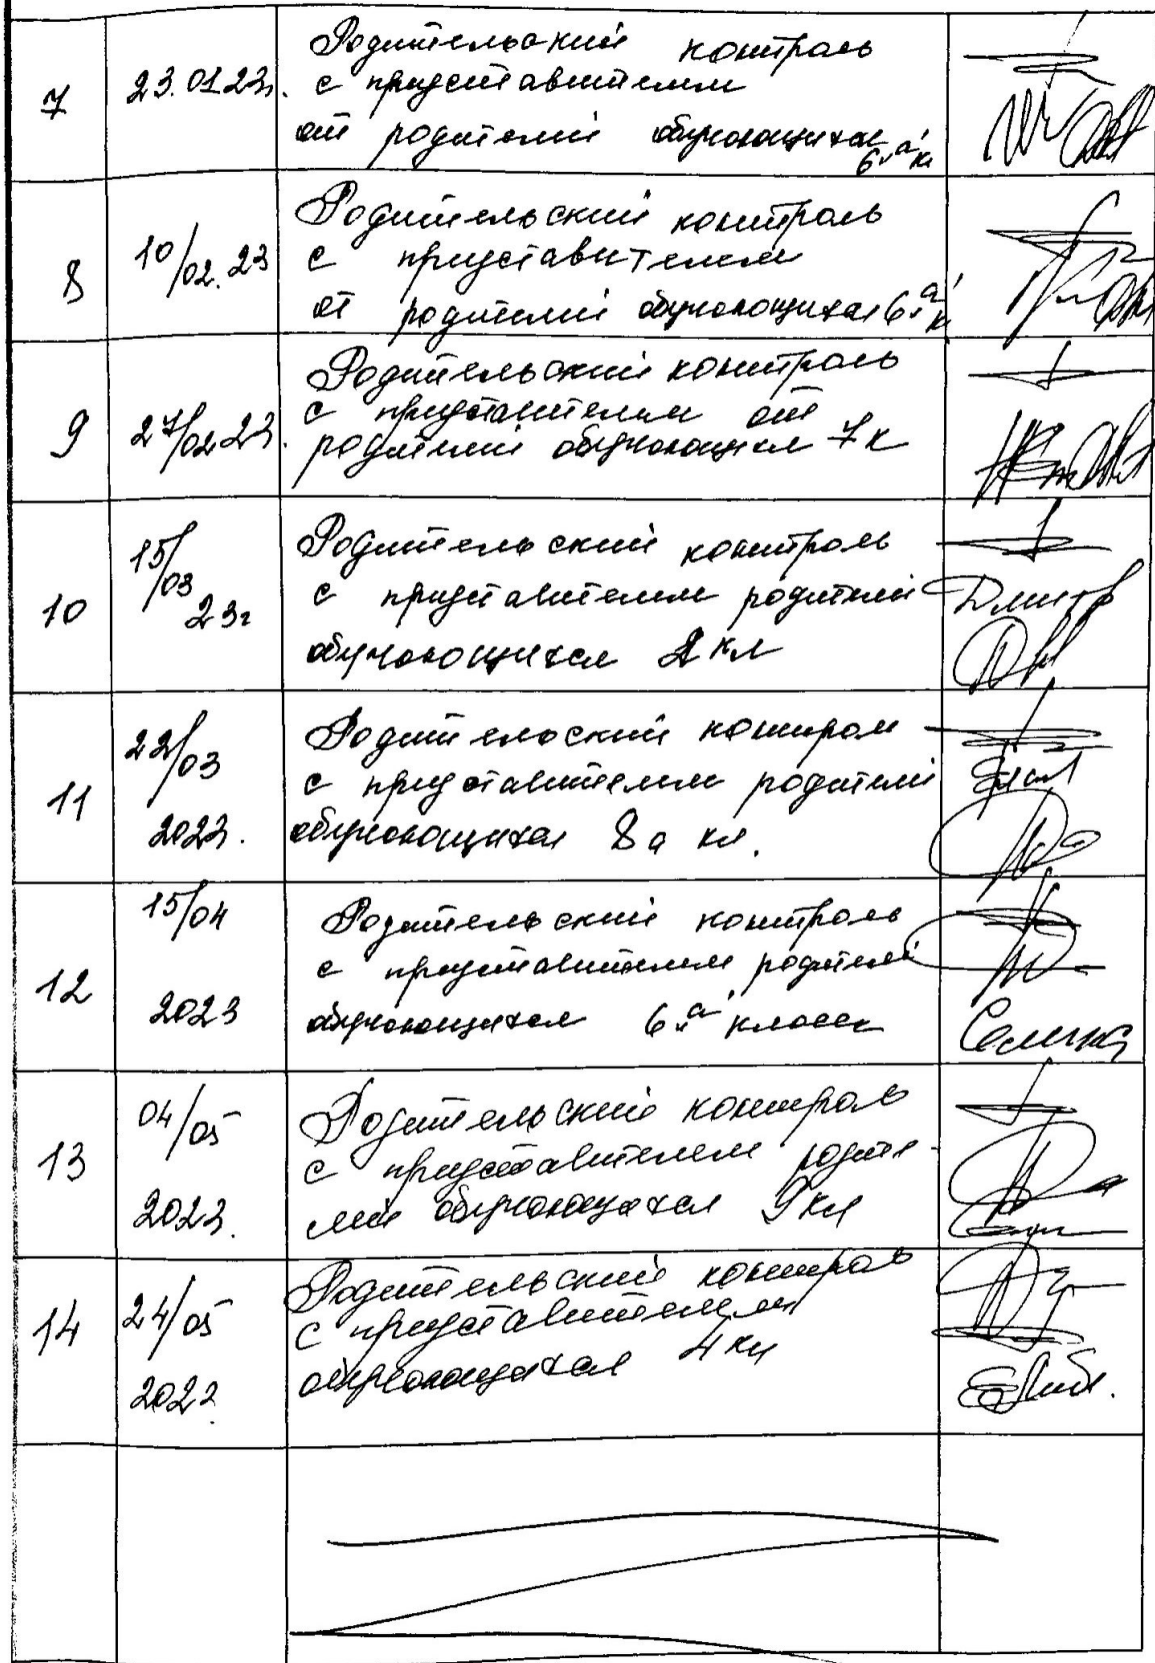 7 23.01.23г. Родительский контроль
с представителем
от родителей обучающихся
6 "а" кл
8 10/02.23 Родительский контроль
с представителем
от родителей обучающихся 6 "а" кл
9 27/02 23. Родительский контроль
с представителем от
родителей обучающихся 7 к
10 15/03 23г Родительский контроль
с представителем родителей
обучающихся кл
11 22/03 2023. Родительский контроль
с представителем родителей
обучающихся 8 а кл.
12 15/04 2023 Родительский контроль
с представителем родителей
обучающихся 6 "а" класса
13 04/05 2023. Родительский контроль
с представителем родите-
лей обучающихся 9 кл
14 24/05 Родительский контроль
с представителем
обучающихся 4 кл